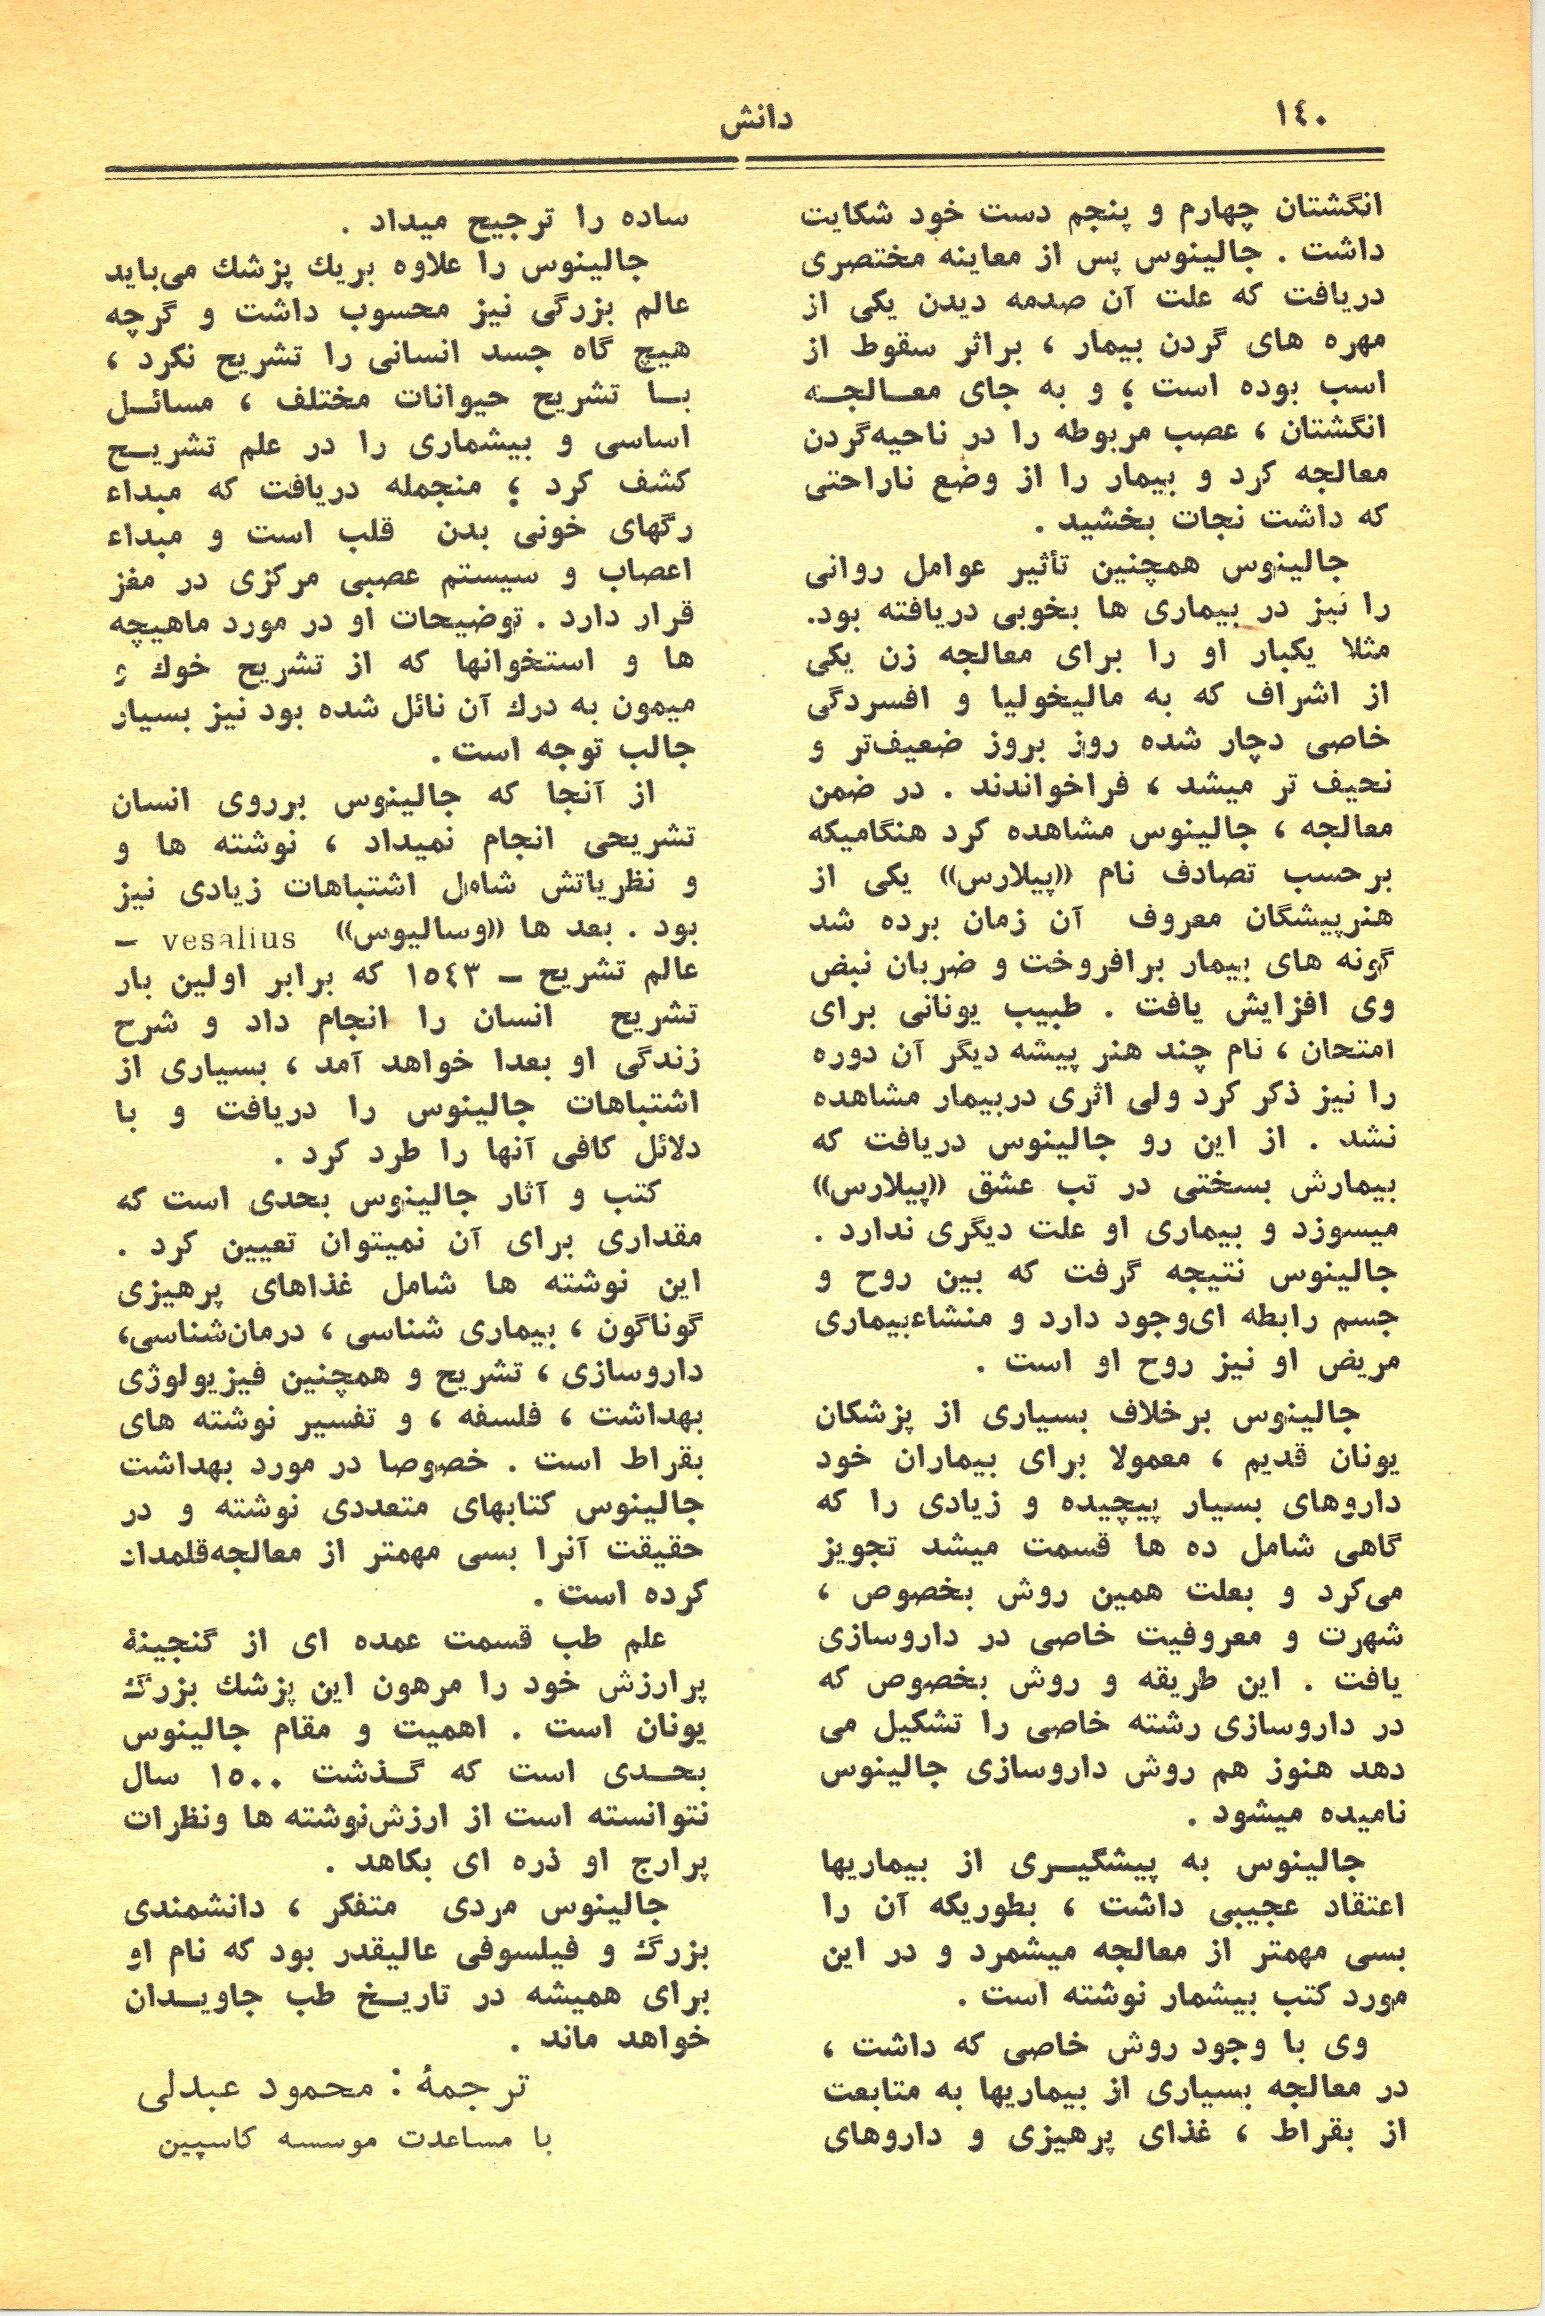 ۱٤۰
دانش
انگشتان چهارم و پنجم دست خود شکایت
داشت . جالینوس پس از معاینه مختصری
دریافت که علت آن صدمه دیدن یکی از
مهره های گردن بیمار ، براثر سقوط از
اسب بوده است ؛ و به جای معـالجـه
انگشتان ، عصب مربوطه را در ناحیه‌گردن
معالجه کرد و بیمار را از وضع ناراحتی
که داشت نجات بخشید .
جالینوس همچنین تأثیر عوامل روانی
را نیز در بیماری ها بخوبی دریافته بود.
مثلا یکبار او را برای معالجه زن یکی
از اشراف که به مالیخولیا و افسردگی
خاصی دچار شده روز بروز ضعیف‌تر و
نحیف تر میشد ، فراخواندند . در ضمن
معالجه ، جالینوس مشاهده کرد هنگامیکه
برحسب تصادف نام ((پیلارس)) یکی از
هنرپیشگان معروف آن زمان برده شد
گونه های بیمار برافروخت و ضربان نبض
وی افزایش یافت . طبیب یونانی برای
امتحان ، نام چند هنر پیشه دیگر آن دوره
را نیز ذکر کرد ولی اثری دربیمار مشاهده
نشد . از این رو جالینوس دریافت که
بیمارش بسختی در تب عشق ((پیلارس))
میسوزد و بیماری او علت دیگری ندارد .
جالینوس نتیجه گرفت که بین روح و
جسم رابطه ای‌وجود دارد و منشاءبیماری
مریض او نیز روح او است .
جالینوس برخلاف بسیاری از پزشکان
یونان قدیم ، معمولا برای بیماران خود
داروهای بسیار پیچیده و زیادی را که
گاهی شامل ده ها قسمت میشد تجویز
می‌کرد و بعلت همین روش بخصوص ،
شهرت و معروفیت خاصی در داروسازی
یافت . این طریقه و روش بخصوص که
در داروسازی رشته خاصی را تشکیل می
دهد هنوز هم روش داروسازی جالینوس
نامیده میشود .
جالینوس به پیشگیـری از بیماریها
اعتقاد عجیبی داشت ، بطوریکه آن را
بسی مهمتر از معالجه میشمرد و در این
مورد کتب بیشمار نوشته است .
وی با وجود روش خاصی که داشت ،
در معالجه بسیاری از بیماریها به متابعت
از بقراط ، غذای پرهیزی و داروهای
ساده را ترجیح میداد .
جالینوس را علاوه بریك پزشك می‌باید
عالم بزرگی نیز محسوب داشت و گرچه
هیچ گاه جسد انسانی را تشریح نکرد ،
بـا تشریح حیوانات مختلف ، مسائـل
اساسی و بیشماری را در علم تشریـح
کشف کرد ؛ منجمله دریافت که مبداء
رگهای خونی بدن قلب است و مبداء
اعصاب و سیستم عصبی مرکزی در مغز
قرار دارد . توضیحات او در مورد ماهیچه
ها و استخوانها که از تشریح خوك و
میمون به درك آن نائل شده بود نیز بسیار
جالب توجه است .
از آنجا که جالینوس برروی انسان
تشریحی انجام نمیداد ، نوشته ها و
و نظریاتش شامل اشتباهات زیادی نیز
بود . بعد ها ((وسالیوس)) vesalius –
عالم تشریح – ۱٥٤۳ که برابر اولین بار
تشریح انسان را انجام داد و شرح
زندگی او بعدا خواهد آمد ، بسیاری از
اشتباهات جالینوس را دریافت و با
دلائل کافی آنها را طرد کرد .
کتب و آثار جالینوس بحدی است که
مقداری برای آن نمیتوان تعیین کرد .
این نوشته ها شامل غذاهای پرهیزی
گوناگون ، بیماری شناسی ، درمان‌شناسی،
داروسازی ، تشریح و همچنین فیزیولوژی
بهداشت ، فلسفه ، و تفسیر نوشته های
بقراط است . خصوصا در مورد بهداشت
جالینوس کتابهای متعددی نوشته و در
حقیقت آنرا بسی مهمتر از معالجه‌قلمداد
کرده است .
علم طب قسمت عمده ای از گنجینۀ
پرارزش خود را مرهون این پزشك بزرگ
یونان است . اهمیت و مقام جالینوس
بحـدی است که گـذشت ۱٥۰۰ سال
نتوانسته است از ارزش‌نوشته ها ونظرات
پرارج او ذره ای بکاهد .
جالینوس مردی متفکر ، دانشمندی
بزرگ و فیلسوفی عالیقدر بود که نام او
برای همیشه در تاریـخ طب جاویـدان
خواهد ماند .
ترجمۀ : محمود عبدلی
با مساعدت موسسه کاسپین